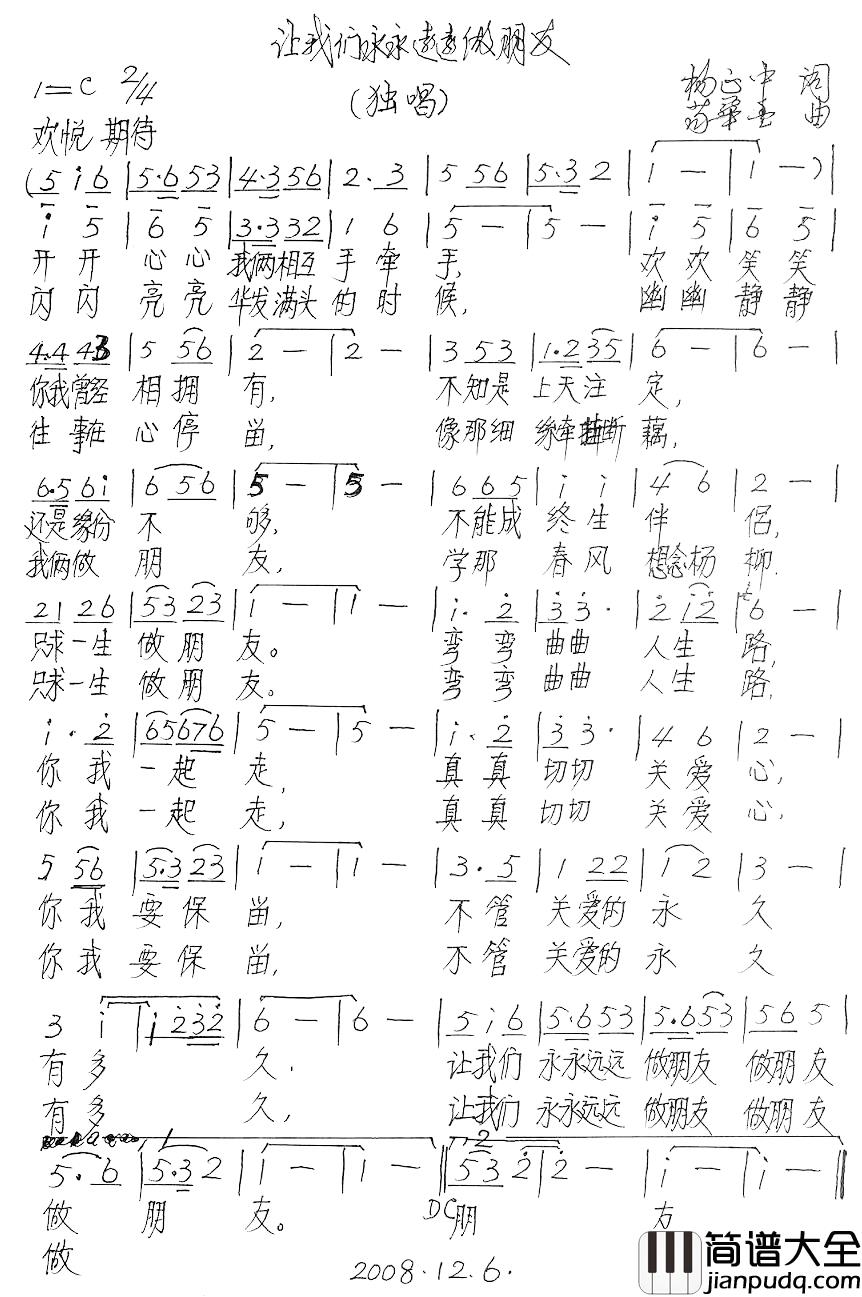 让我们永永远远做朋友
1=C 2/4
(独唱)
杨正中 词
曲
欢悦 期待
(5 i 6 | 5·6 53 | 4·3 56 | 2·3 | 5 56 | 5·3 2 | i — | i —)|
i 5 | 6 5 | 3·3 32 | 1 6 | 5 — | 5 — | i 5 | 6 5 |
开 开 心 心 我俩相互 手 牵 手, 欢 欢 笑 笑
闪 闪 亮 亮 华发满头 的 时 候, 幽 幽 静 静
4·4 43 | 5 56 | 2 — | 2 — | 3 53 | 1·2 35 | 6 — | 6 — |
你我曾经 相 拥 有, 不知是 上天注 定,
往事在 心 停 留, 像那细 丝牵 断 藕,
6·5 6i | 6 56 | 5 — | 5 — | 6 65 | i i | 4 6 | 2 — |
还是缘份 不 够, 不能成 终 生 伴 侣,
我俩做 朋 友, 学那 春 风 想念杨 柳.
21 26 | 53 23 | 1 — | 1 — | i· 2 | 3 3· | 2 i2 | 6 — |
只求一生 做 朋 友。 弯 弯 曲曲 人 生 路,
只求一生 做 朋 友。 弯 弯 曲曲 人 生 路,
i· 2 | 65 676 | 5 — | 5 — | i· 2 | 3 3· | 4 6 | 2 — |
你 我 一 起 走, 真 真 切切 关 爱 心,
你 我 一 起 走, 真 真 切切 关 爱 心,
5 56 | 5·3 23 | 1 — | 1 — | 3·5 | 1 22 | 1 2 | 3 — |
你 我 要 保 留, 不 管 关爱的 永 久
你 我 要 保 留, 不 管 关爱的 永 久
3 i | i 232 | 6 — | 6 — | 5 i 6 | 5·6 53 | 5·6 53 | 56 5 |
有 多 久. 让我们 永永远远 做朋友 做朋友
有 多 久, 让我们 永永远远 做朋友 做朋友
1 2
5·6 | 5·3 2 | i — | i — ‖ 53 2 | 2 — | i — | i — ‖
做 朋 友。 DC 朋 友
做
2008.12.6.
简谱大全
jianpudq.com